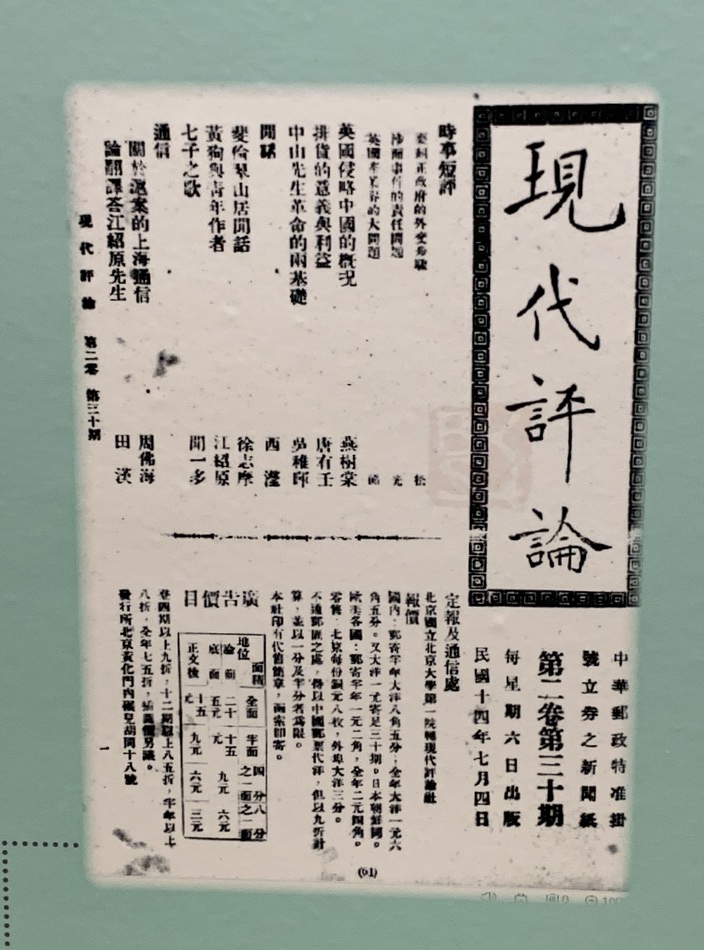 現代評論
中華郵政特准掛
號立券之新聞紙
第二卷第三十期
每星期六日出版
民國十四年七月四日
時事短評
英國侵略中國的概況 燕樹棠
排貨的意義與利益 唐有壬
中山先生革命的兩基礎 吳稚暉
閒話 西瀅
翡冷翠山居閒話 徐志摩
黃狗與青年作者 江紹原
七子之歌 聞一多
通信
關於滬案的上海通信 周佛海
論翻譯答江紹原先生 田漢
現代評論 第二卷 第三十期
定報及通信處
北京國立北京大學第一院轉現代評論社
報價
國內:郵寄半年大洋八角五分;全年大洋一元六
角五分。又大洋一元寄足三十期。日本朝鮮同。
歐美各國:郵寄半年一元二角,全年二元四角。
零售:北京每份銅元八枚,外埠大洋三分。
不通郵匯之處,得以中國郵票代洋,但以九折計
算,並以一分及半分者為限。
本社印有代售簡章,函索即寄。
廣告價目
地位 面積 全面 半面 四分之一面 八分之一面
二十元 十五元 九元 六元
正文後 十五元 九元 六元 三元
登四期以上九折,十二期以上八五折,半年以上
八折,全年七五折,
發行所北京
一
(61)